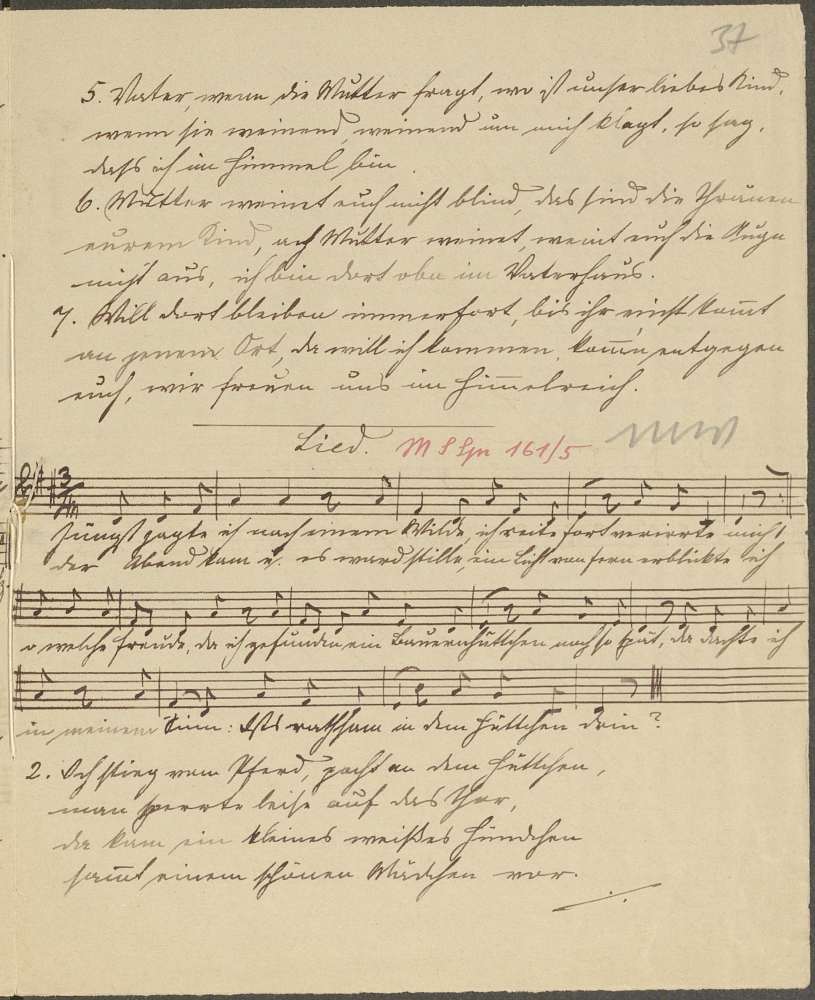 37
5. Vater, wenn die Mutter fragt, wo ist unser liebes Kind,
wenn sie weinend, weinend um mich klagt, so sag,
dass ich im Himmel bin.
6. Mutter weinet euch nicht blind, das sind die Thränen
eurem Kind, ach Mutter weinet, weint euch die Auge
nicht aus, ich bin dort oben im Vaterhaus.
7. Will dort bleiben immerfort, bis ihr einst kom̅t
an jenem Ort, da will ich kommen, kom̅n entgegen
euch, wir freuen uns im Him̅elreich.
Lied. 161/5
3/4
Jüngst jagte ich nach einem Wilde, ich reite fort verirrte mich
der Abend kam u. es ward stille, ein Licht von fern erblickte ich
o welche Freude, da ich gefunden ein Bauernhüttchen noch so spät, da dachte ich
in meinem Sinn: Ists rathsam in dem Hüttchen drin?
2. Ich stieg vom Pferd, pocht an dem Hüttchen,
man sperrte leise auf das Thor,
da kam ein kleines weißes Hündchen
sam̅t einem schönen Mädchen vor.